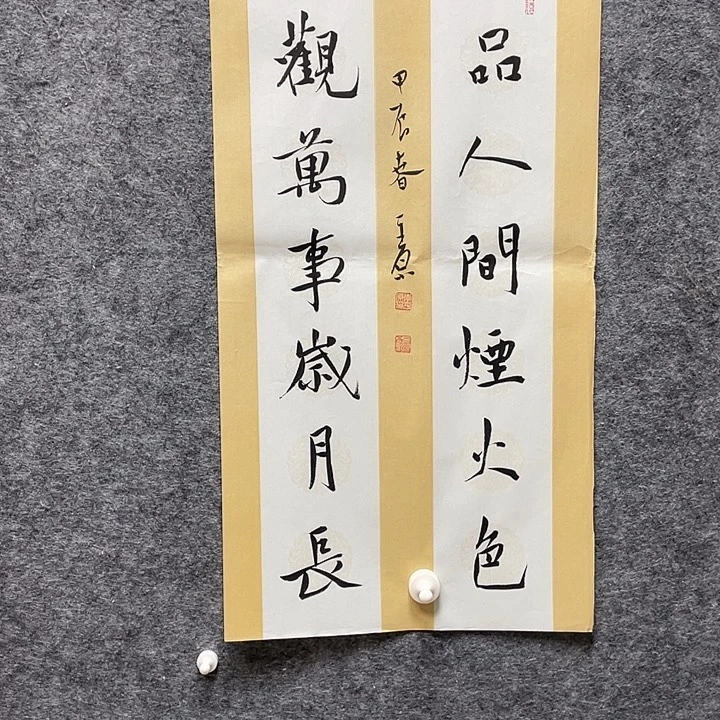 品人間煙火色
觀萬事歲月長
甲辰春